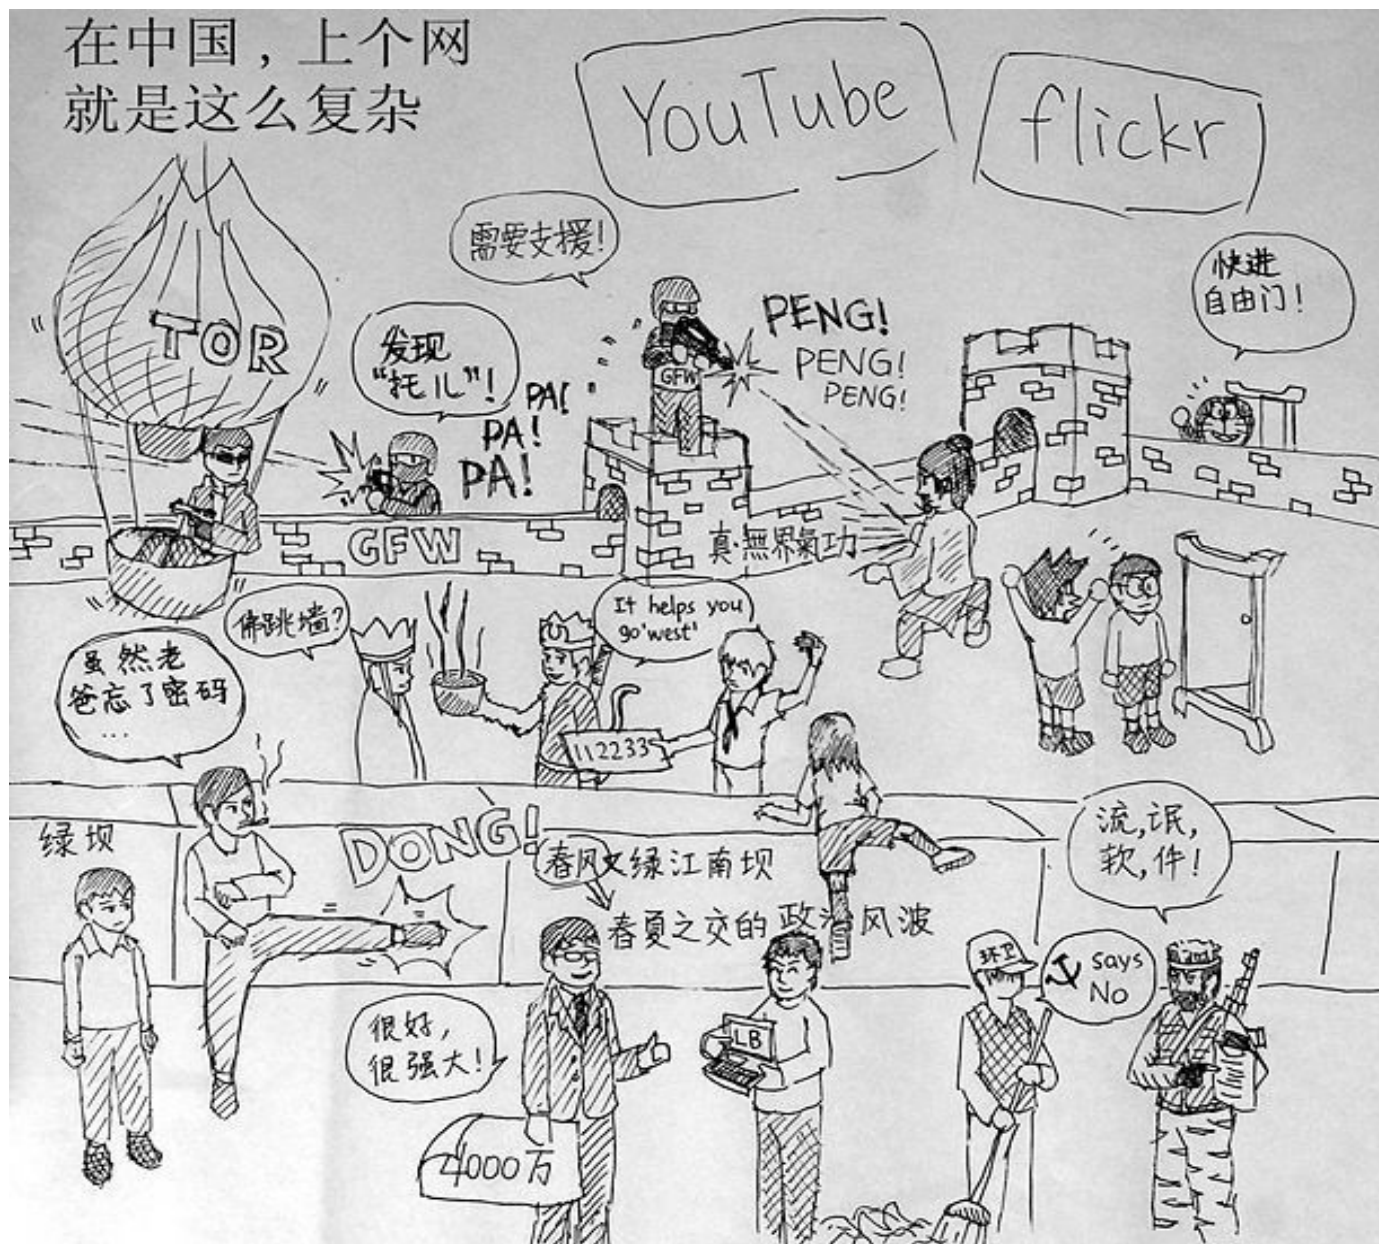 在中国，上个网
就是这么复杂
YouTube
flickr
需要支援!
快进
自由门!
TOR
发现
“托儿”!
PA!
PA!
PA!
GFW
PENG!
PENG!
PENG!
GFW
真·無界氣功
佛跳墙?
It helps you
go'west'
虽然老
爸忘了密码
...
112233
绿坝
DONG!
春风又绿江南坝
春夏之交的政治风波
流,氓,
软,件!
环卫
says
No
很好,
很强大!
LB
4000万